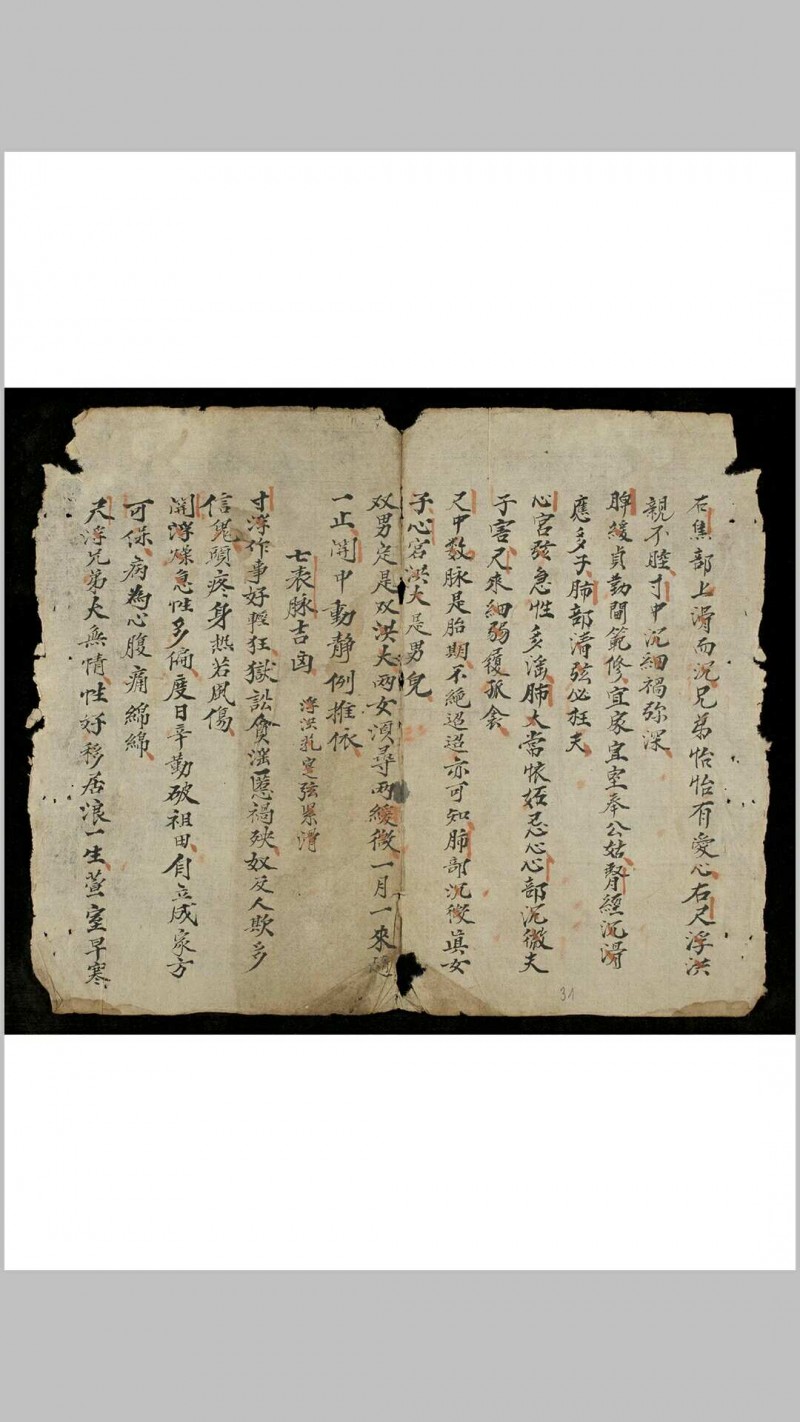 右焦部上滑而沉兄弟怡怡有愛心右尺浮洪
親不睦寸中沉細禍弥深
脾緩貞勤閫範修宜家宜室奉公姑腎經沉滑
應多子肺部清弦必狂夫
心宮弦急性多滛肺大當懷妬忌心心部沉微夫
子害尺來細弱履孤衾
尺中数脉是胎期不絶迢迢亦可知肺部沉微真女
子心宮洪大是男兒
双男定是双洪大兩女須尋兩緩微一月一來過
一止関中動靜例推依
七表脉吉凶 浮洪芤寔弦緊滑
寸浮作事好輕狂獄訟貪滛惹禍殃奴反人欺多
信鬼頭疼身热若風傷
関浮燥急性多偏度日辛勤破祖田自立成家方
可保病為心腹痛綿綿
尺浮兄弟大無情性好移居浪一生萱室早寒
31